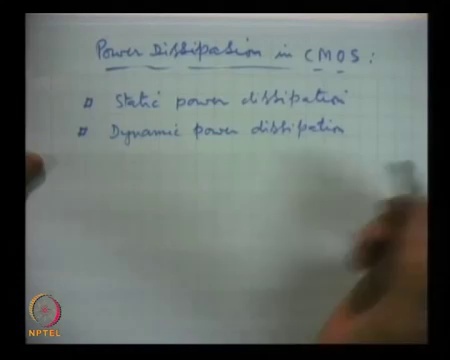 Power Dissipation in CMOS :
Static power dissipation
Dynamic power dissipation
NPTEL